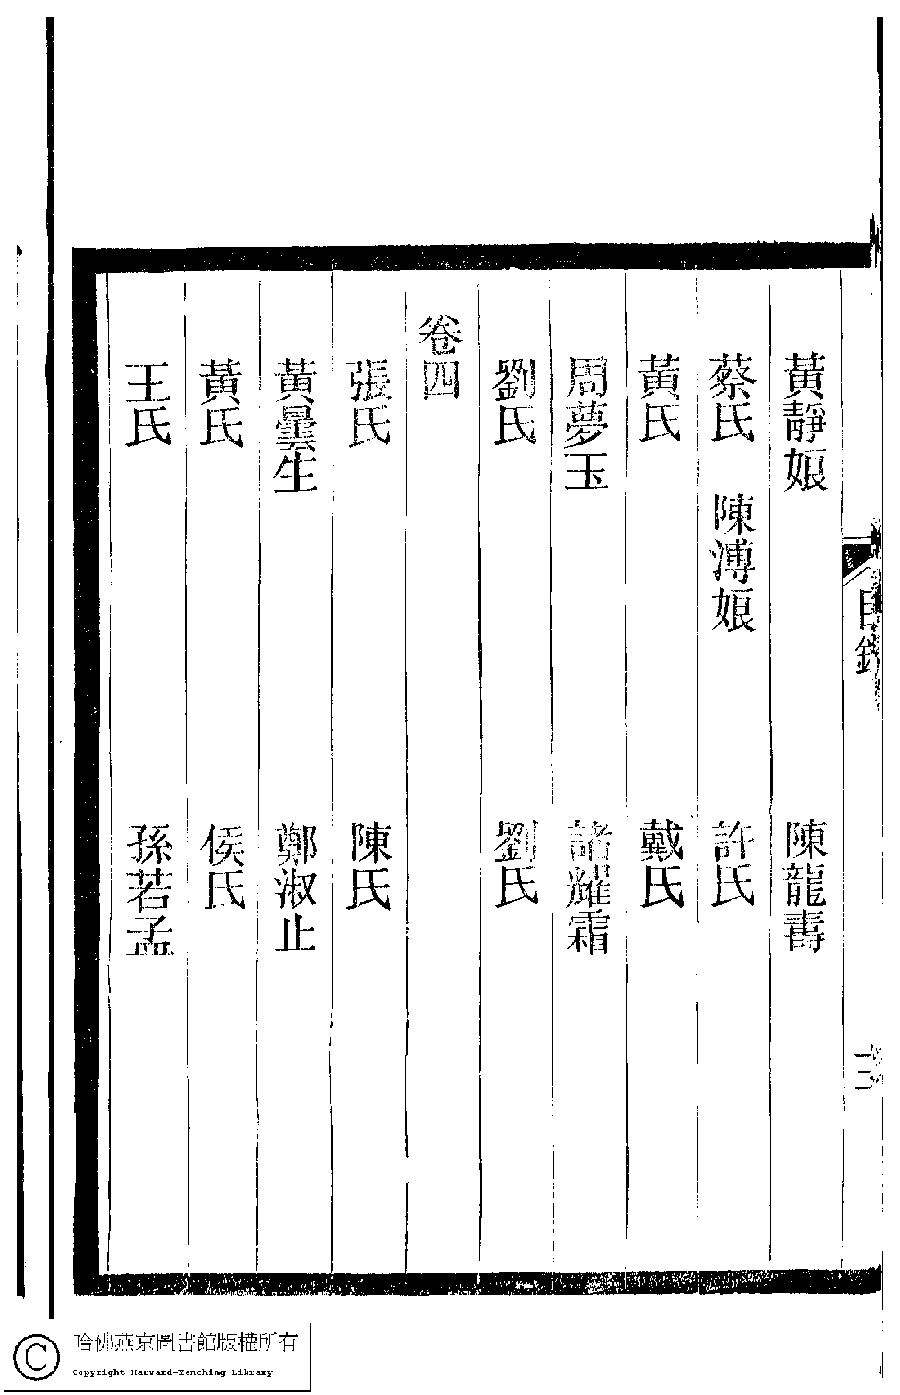 黃靜娘　陳龍壽
蔡氏　陳溥娘　許氏
黃氏　戴氏
周夢玉　諸耀霜
劉氏　劉氏
卷四
張氏　陳氏
黃曇生　鄭淑止
黃氏　侯氏
王氏　孫若孟
目錄
哈佛燕京圖書館版權所有
Copyright Harvard-Yenching Library